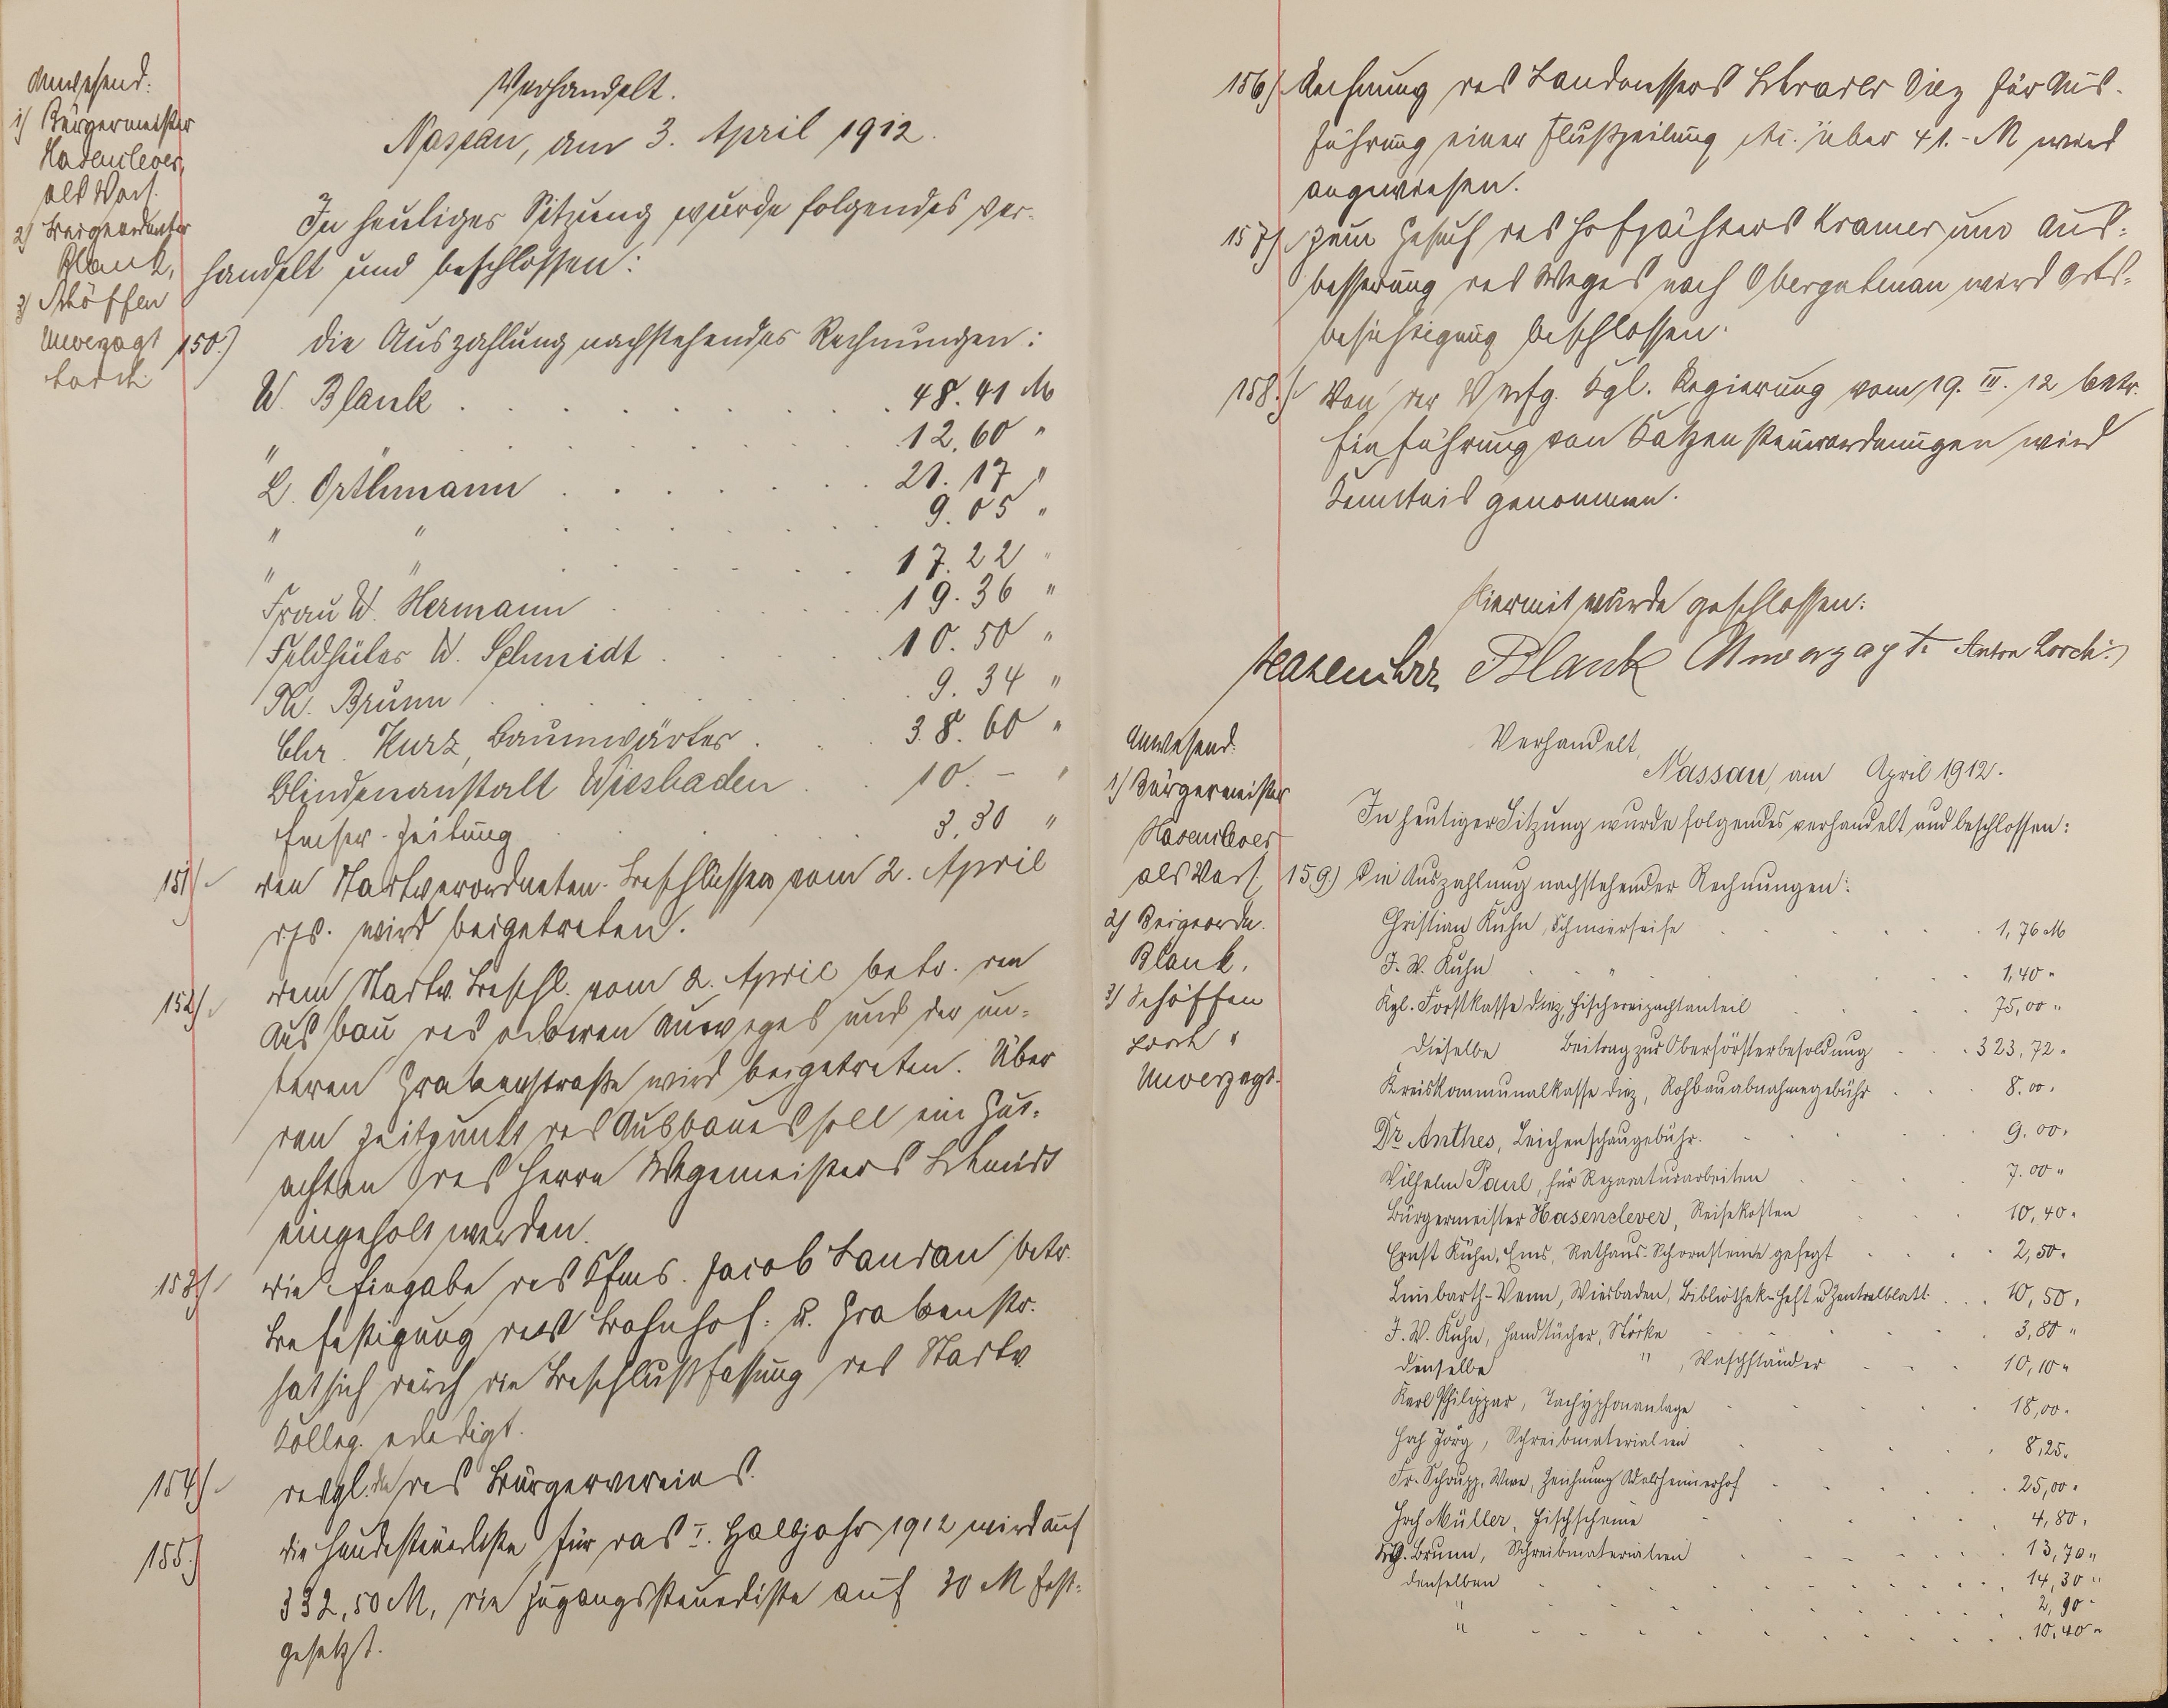 Anwesend:
1) Bürgermeister
Hasenclever,
als Vors.
2) Beigeordneter
Blank,
3) Schöffen
Unverzagt
Lorch
Verhandelt.
Nassau, am 3. April 1912.
In heutiger Sitzung wurde folgendes ver-
handelt und beschlossen:
150.) die Auszahlung nachstehender Rechnungen:
W. Blank . . . 48.41 M
" . . . 12.60 "
L. Orthmann . . . 21.17 "
" " . . . 9.05 "
" " . . . 17.22 "
Frau W. Hermann . . . 19.36 "
Feldhüter W. Schmidt . . . 10.50 "
Ph. Brunn . . . 9.34 "
Chr. Kurz, Baumwärter . . . 38.60 "
Blindenanstalt Wiesbaden . . . 10.- "
Emser-Zeitung . . . 3.30 "
151) den Stadtverordneten-Beschlüssen vom 2. April
ds. Js. wird beigetreten.
152) dem Stadtv. Beschl. vom 2. April betr. den
Ausbau des oberen Auweges und der un-
teren Grabenstraße wird beigetreten. Über
den Zeitpunkt des Ausbaues soll ein Gut-
achten des Herrn Wegemeisters Schmidt
eingeholt werden.
153) die Eingabe des Kfms. Jacob Landau betr.
Befestigung der Bahnhof- u. Grabenstr.
hat sich durch die Beschlußfassung des Stadtv.
Kolleg. erledigt.
154) desgl. die des Bürgervereins.
155) die Hundesteuerliste für das I. Halbjahr 1912 wird auf
332,50 M, die Zugangssteuerliste auf 30 M fest-
gesetzt.
156) Rechnung des Landmessers Schrader Diez für Aus-
führung einer Flußteilung etc. über 41.- M wird
angewiesen.
157) Zum Gesuch des Hofpächters Kramer um Aus-
besserung des Weges nach Obergutenau wird Orts-
besichtigung beschlossen.
158.) Von der Verfg. Kgl. Regierung vom 19. III. 12 betr.
Einführung von Katzensteuerordnungen wird
Kenntnis genommen.
Hiermit wurde geschlossen:
Hasenclever Blank Unverzagt. Anton Lorch.
Anwesend:
1) Bürgermeister
Hasenclever
als Vors.
2) Beigeordn.
Blank,
3) Schöffen
Lorch "
Unverzagt.
Verhandelt,
Nassau, am April 1912.
In heutiger Sitzung wurde folgendes verhandelt und beschlossen:
159) Die Auszahlung nachstehender Rechnungen:
Christian Kuhn, Schmierseife . . . 1,76 M
J. W. Kuhn " . . . 1,40 "
Kgl. Forstkasse Diez, Fischereipachtanteil . . . 75,00 "
dieselbe Beitrag zur Oberförsterbesoldung . . . 323,72 "
Kreiskommunalkasse Diez, Rohbauabnahmegebühr . . . 8.00 "
Dr. Anthes, Leichenschaugebühr . . . 9.00 "
Wilhelm Paul, für Reparaturarbeiten . . . 7.00 "
Bürgermeister Hasenclever, Reisekosten . . . 10,40 "
Ernst Kühn, Ems, Rathaus-Schornsteine gefegt . . . 2,50 "
Limbarth-Venn, Wiesbaden, Bibliothek-Heft u Zentralblatt . . . 10,50 "
J. W. Kuhn, Handtücher, Stärke . . . 3,80 "
derselbe " , Waschständer . . . 10,10 "
Karl Philippar, Tachyphonanlage . . . 18,00 "
Hch Jörg, Schreibmaterialien . . . 8,25 "
Fr. Schrupp, Wwe, Zeichnung Adelsheimerhof . . . 25,00 "
Hch Müller, Fischscheine . . . 4,80 "
Ph. Brunn, Schreibmaterialien . . . 13,70 "
denselben . . . 14,30 "
" . . . 2,90 "
" . . . 10,40 "